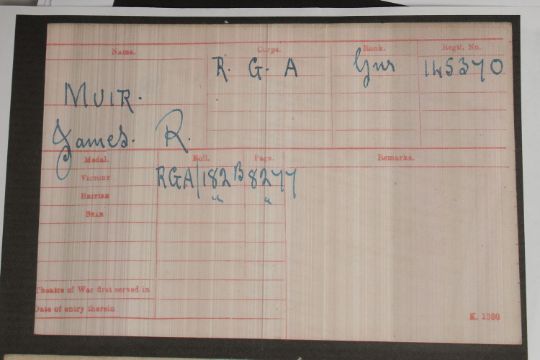 Name. Corps. Rank. Regtl. No.
R. G. A Gnr 145370
MUIR.
James. R.
Medal. Roll. Page. Remarks.
Victory RGA/182B 8277
British " "
Star
Theatre of War first served in
Date of entry therein
K. 1380